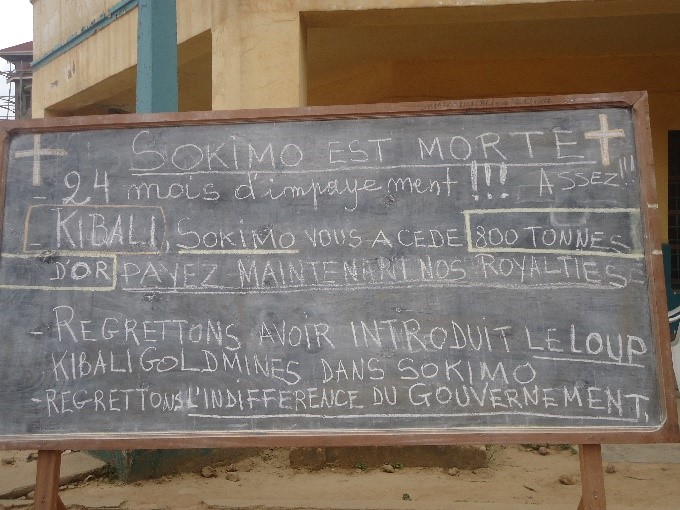 SOKIMO EST MORTE
- 24 mois d'impayement !!! ASSEZ!!!
- KIBALI, SOKIMO VOUS A CEDE 800 TONNES
D'OR PAYEZ MAINTENANT NOS ROYALTIESE
- REGRETTONS AVOIR INTRODUIT LE LOUP
KIBALI GOLDMINES DANS SOKIMO
- REGRETTONS L'INDIFFERENCE DU GOUVERNEMENT,